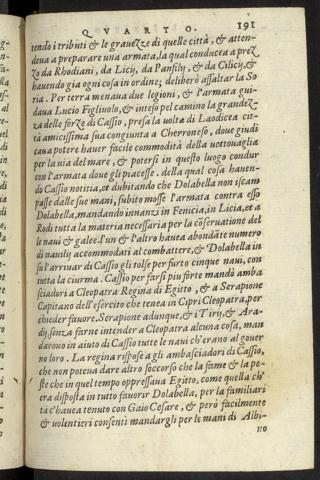 QVARTO. 191
tendo i tributi & le grauezze di quelle città, & atten-
deua a preparare una armata, la qual conducea a prez
zo da Rhodiani, da Licij, da Panfily, & da Cilicij, &
hauendo gia ogni cosa in ordine; deliberò assaltar la So
ria. Per terra menaua due legioni, & l'armata gui-
daua Lucio Figliuolo, & inteso pel camino la grandez-
za delle forze di Cassio, presa la uolta di Laodicea cit-
tà amicissima sua congiunta a Cherroneso, doue giudi
caua potere hauer facile commodità della uettouaglia
per la uia del mare, & potersi in questo luogo condur
con l'armata doue gli piacesse. della qual cosa hauen-
do Cassio notitia, et dubitando che Dolabella non iscam
passe dalle sue mani, subito mosse l'armata contra esso
Dolabella, mandando innanzi in Fenicia, in Licia, et a
Rodi tutta la materia necessaria per la cõseruatione del
le naui & galee. l'un & l'altro hauea abondãte numero
di nauilij accommodati al combattere, & Dolabella in
su l'arriuar di Cassio gli tolse per furto cinque naui, con
tutta la ciurma. Cassio per farsi piu forte mandò amba
sciadori a Cleopatra Regina di Egitto, & a Serapione
Capitano dell'esercito che tenea in Cipri Cleopatra, per
chieder fauore. Serapione adunque, & i Tirij, & Ara-
dij, senza farne intender a Cleopatra alcuna cosa, man
darono in aiuto di Cassio tutte le naui ch'erano al gouer
no loro. La regina rispose a gli ambasciadori di Cassio,
che non potea dare altro soccorso che la fame & la pe-
ste che in quel tempo oppressaua Egitto, come quella ch'
era disposta in tutto fauorir Dolabella, per la familiari
tà c'hauea tenuto con Gaio Cesare, & però facilmente
& uolentieri consentì mandargli per le mani di Albi-
no